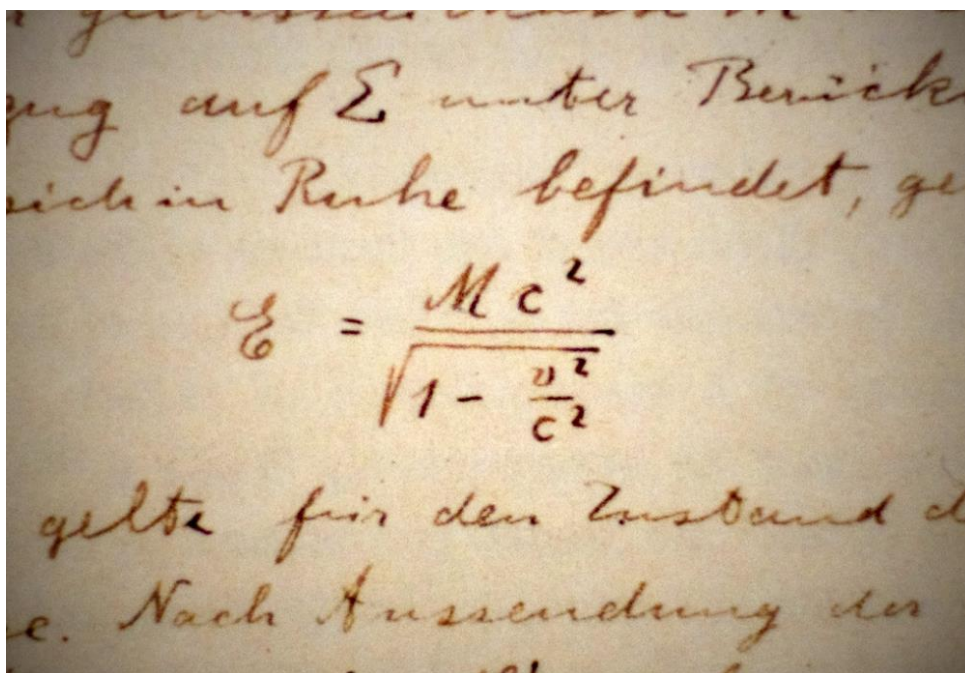 auf Σ unter Berück
sich in Ruhe befindet, ge
ℰ = Mc² / √(1 - v²/c²)
gelte für den Zustand d
e. Nach Aussendung der